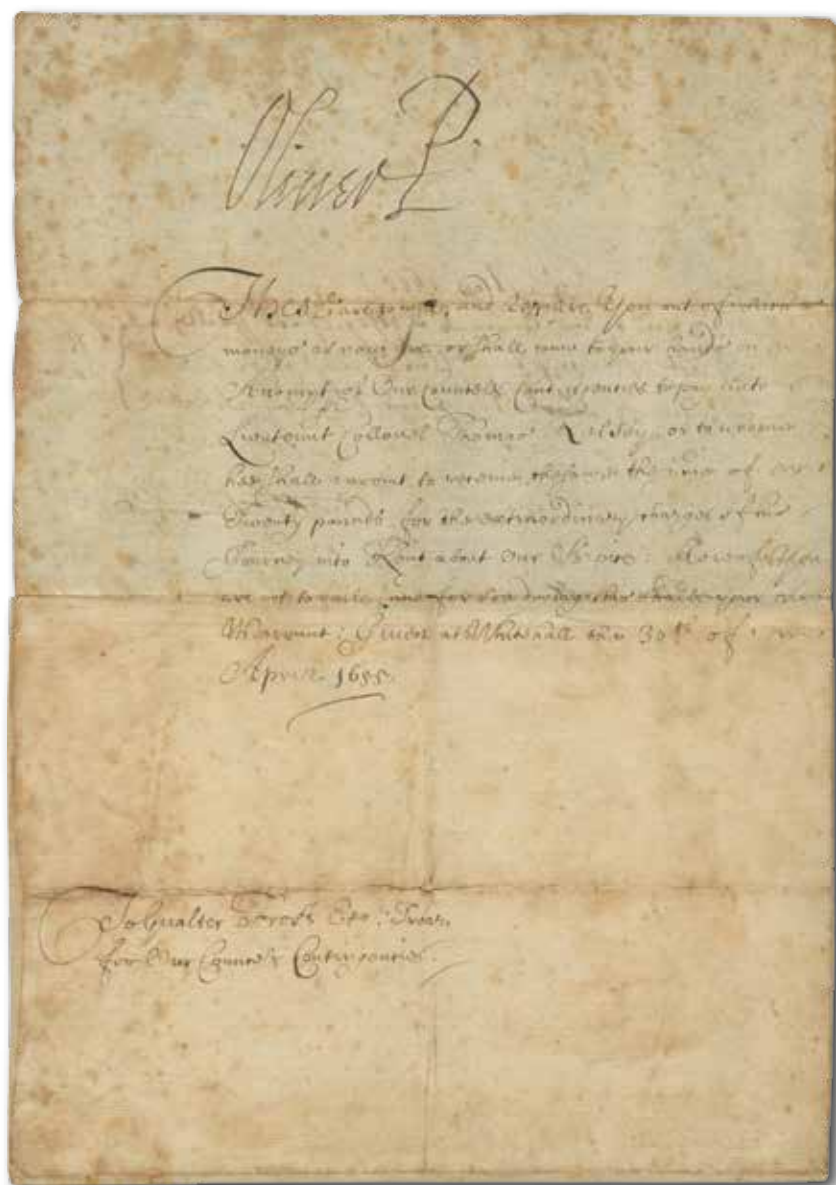 Oliver P
These are to will and require you out of such
moneys as now are or shall come to your hands on
Accompt of Our Counsels Contingencies to pay unto
Lieutenant Collonel Thomas Kelsey or to whome
hee shall appoint to receive the same the summe of
Twenty pounds for the extraordinary charges of his
Journey into Kent about Our
are not to faile and for soe doeing this shalbe your
Warrant: Given at Whitehall this 30th of
Aprill 1655.
To Gualter Frost Esqr: Trear
for Our Counsels Contingencies.